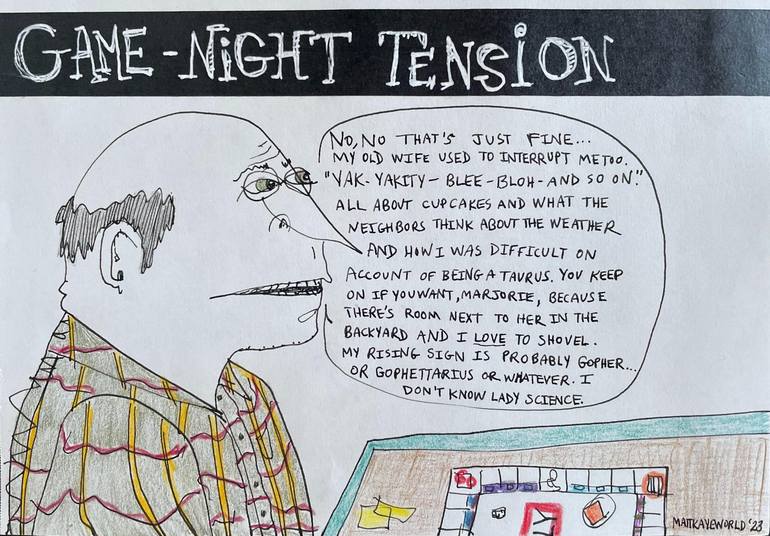 GAME-NIGHT TENSION
NO, NO THAT'S JUST FINE...
MY OLD WIFE USED TO INTERRUPT ME TOO.
"YAK-YAKITY-BLEE-BLOH-AND SO ON."
ALL ABOUT CUPCAKES AND WHAT THE
NEIGHBORS THINK ABOUT THE WEATHER
AND HOW I WAS DIFFICULT ON
ACCOUNT OF BEING A TAURUS. YOU KEEP
ON IF YOU WANT, MARJORIE, BECAUSE
THERE'S ROOM NEXT TO HER IN THE
BACKYARD AND I LOVE TO SHOVEL.
MY RISING SIGN IS PROBABLY GOPHER...
OR GOPHETTARIUS OR WHATEVER. I
DON'T KNOW LADY SCIENCE.
LY
MATTKAYEWORLD '23